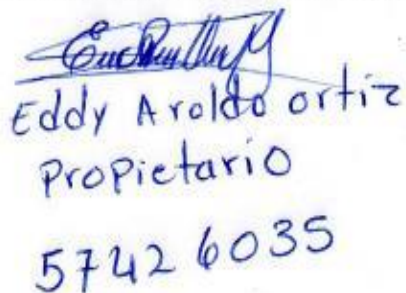 Eddy Aroldo ortiz
Propietario
5742 6035